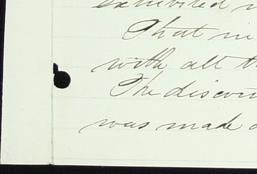 exhibited
That in
with all th
The discov
was made a